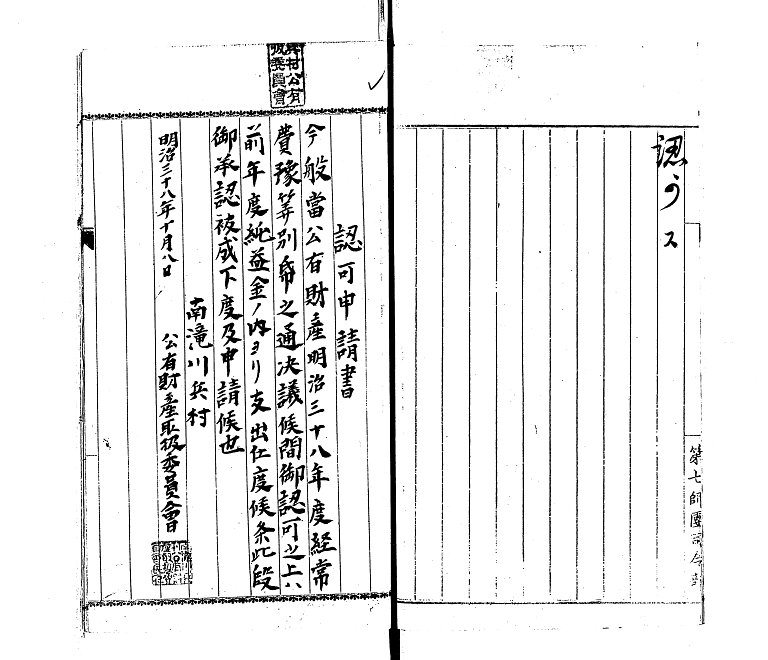 認可ス
第七師團司令部
認可申請書
今般當公有財産明治三十八年度経常
費豫算別帋之通決議候間御認可之上ハ
前年度純益金ノ内ヨリ支出仕度候条此段
御承認被成下度及申請候也
南滝川兵村
明治三十八年十月八日
公有財産取扱委員會
兵村公有
扱委員會